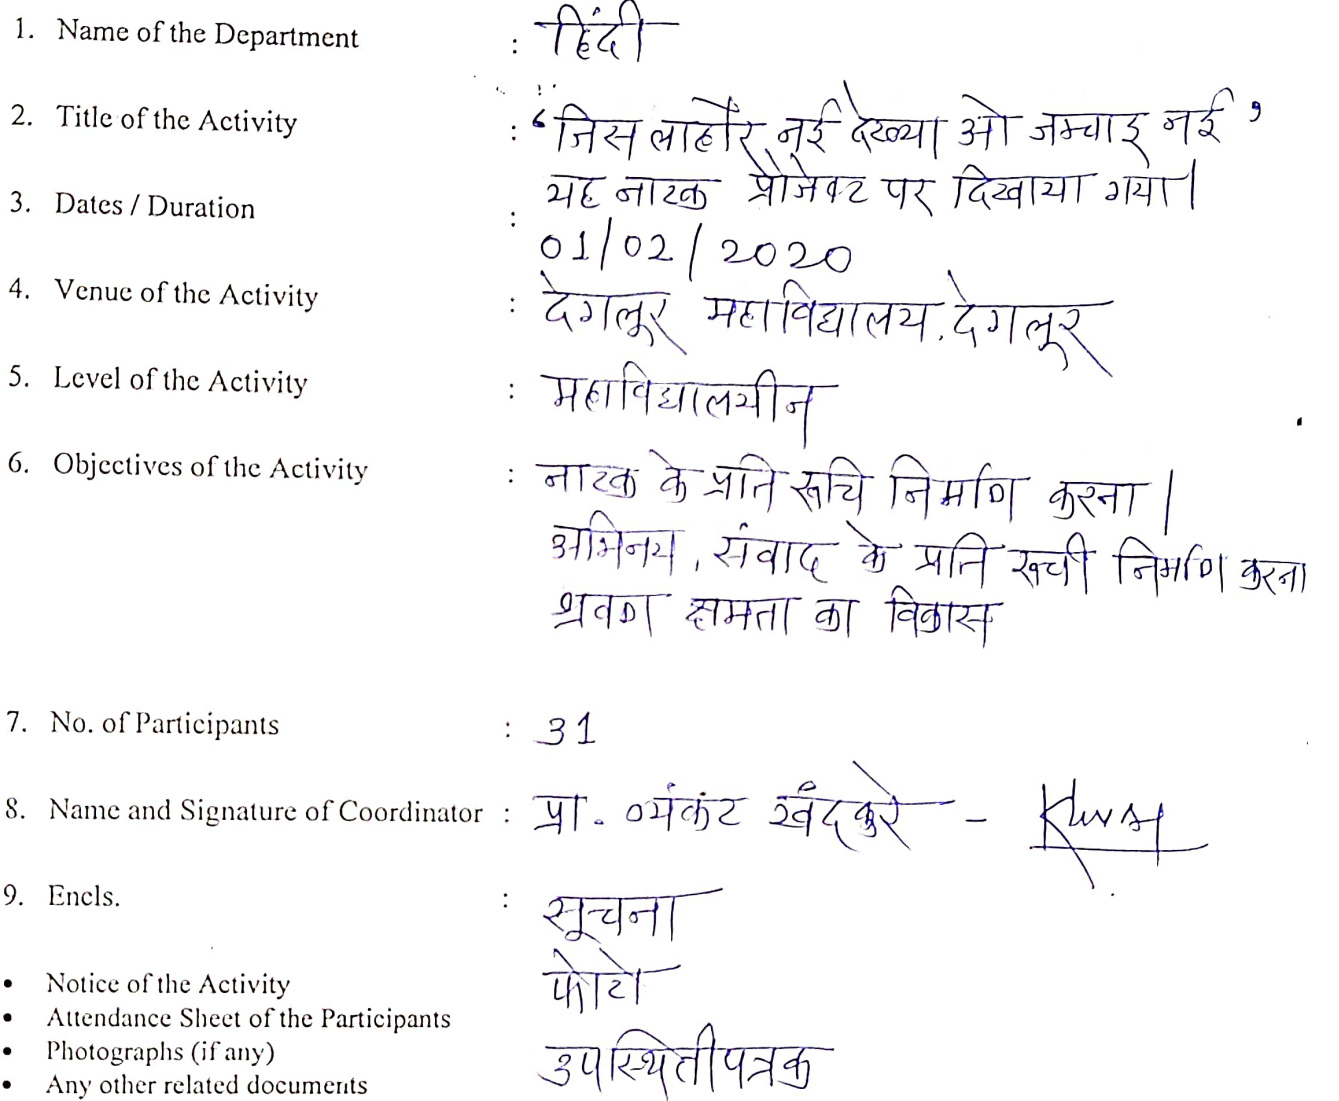 1. Name of the Department : हिंदी
2. Title of the Activity : ‘जिस लाहौर नई देख्या ओ जम्याइ नई’
यह नाटक प्रोजेक्ट पर दिखाया गया।
3. Dates / Duration :
01/02/2020
4. Venue of the Activity : देगलूर महाविद्यालय, देगलूर
5. Level of the Activity : महाविद्यालयीन
6. Objectives of the Activity : नाटक के प्रति रूचि निर्माण करना।
अभिनय, संवाद के प्रति रूची निर्माण करना
श्रवण क्षमता का विकास
7. No. of Participants : 31
8. Name and Signature of Coordinator : प्रा. व्यंकंट खंदकुरे -
9. Encls. : सूचना
• Notice of the Activity फोटो
• Attendance Sheet of the Participants
• Photographs (if any) उपस्थितीपत्रक
• Any other related documents